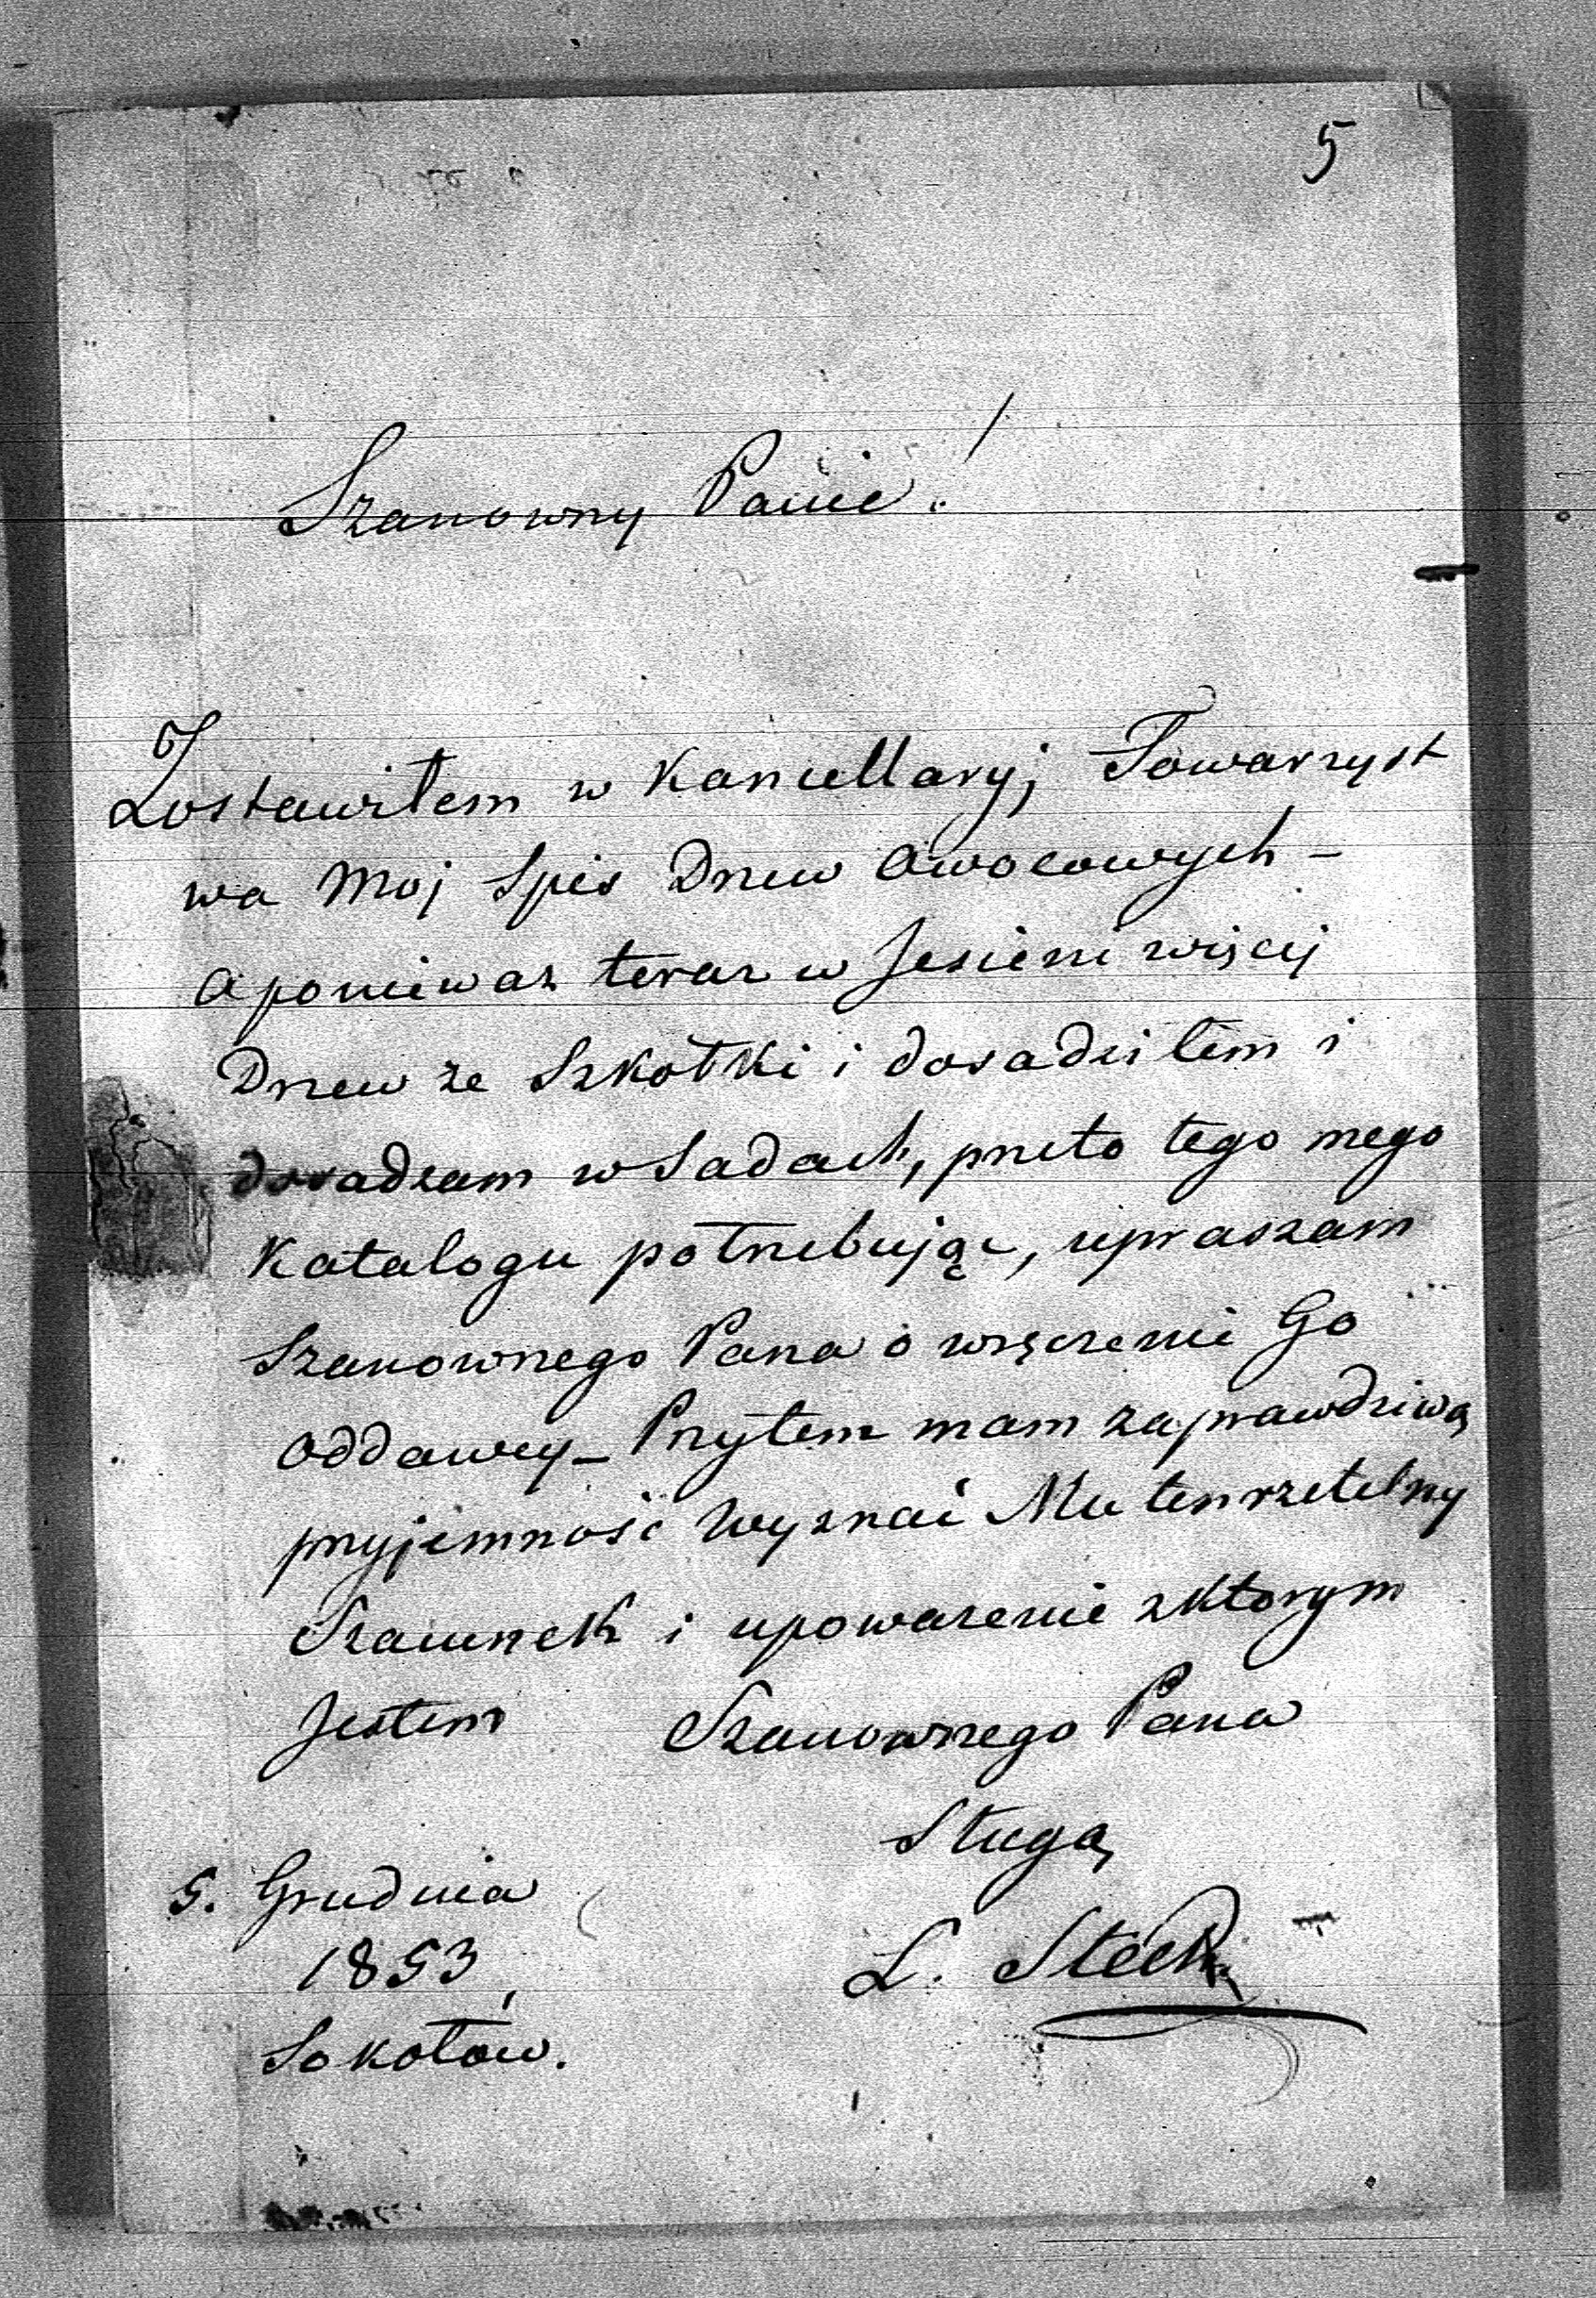 5
Szanowny Panie!
Zostawiłem w Kancellaryj Towarzyst
wa Moj Spis Drzew Owocowych –
a ponieważ teraz w Jesieni więcej
Drzew ze Szkółki i dosadziłem i
dosadzam w Sadach, przeto tego mego
Katalogu potrzebując, upraszam
Szanownego Pana o wręczenie Go
Oddawcy – Przytem mam zaprawdziwą
przyjemność Wyznać Mu ten rzetelny
Szacunek i upoważenie z ktorym
Jestem Szanownego Pana
Sługą
5. Grudnia
1853
L. Stecki
Sokołów.